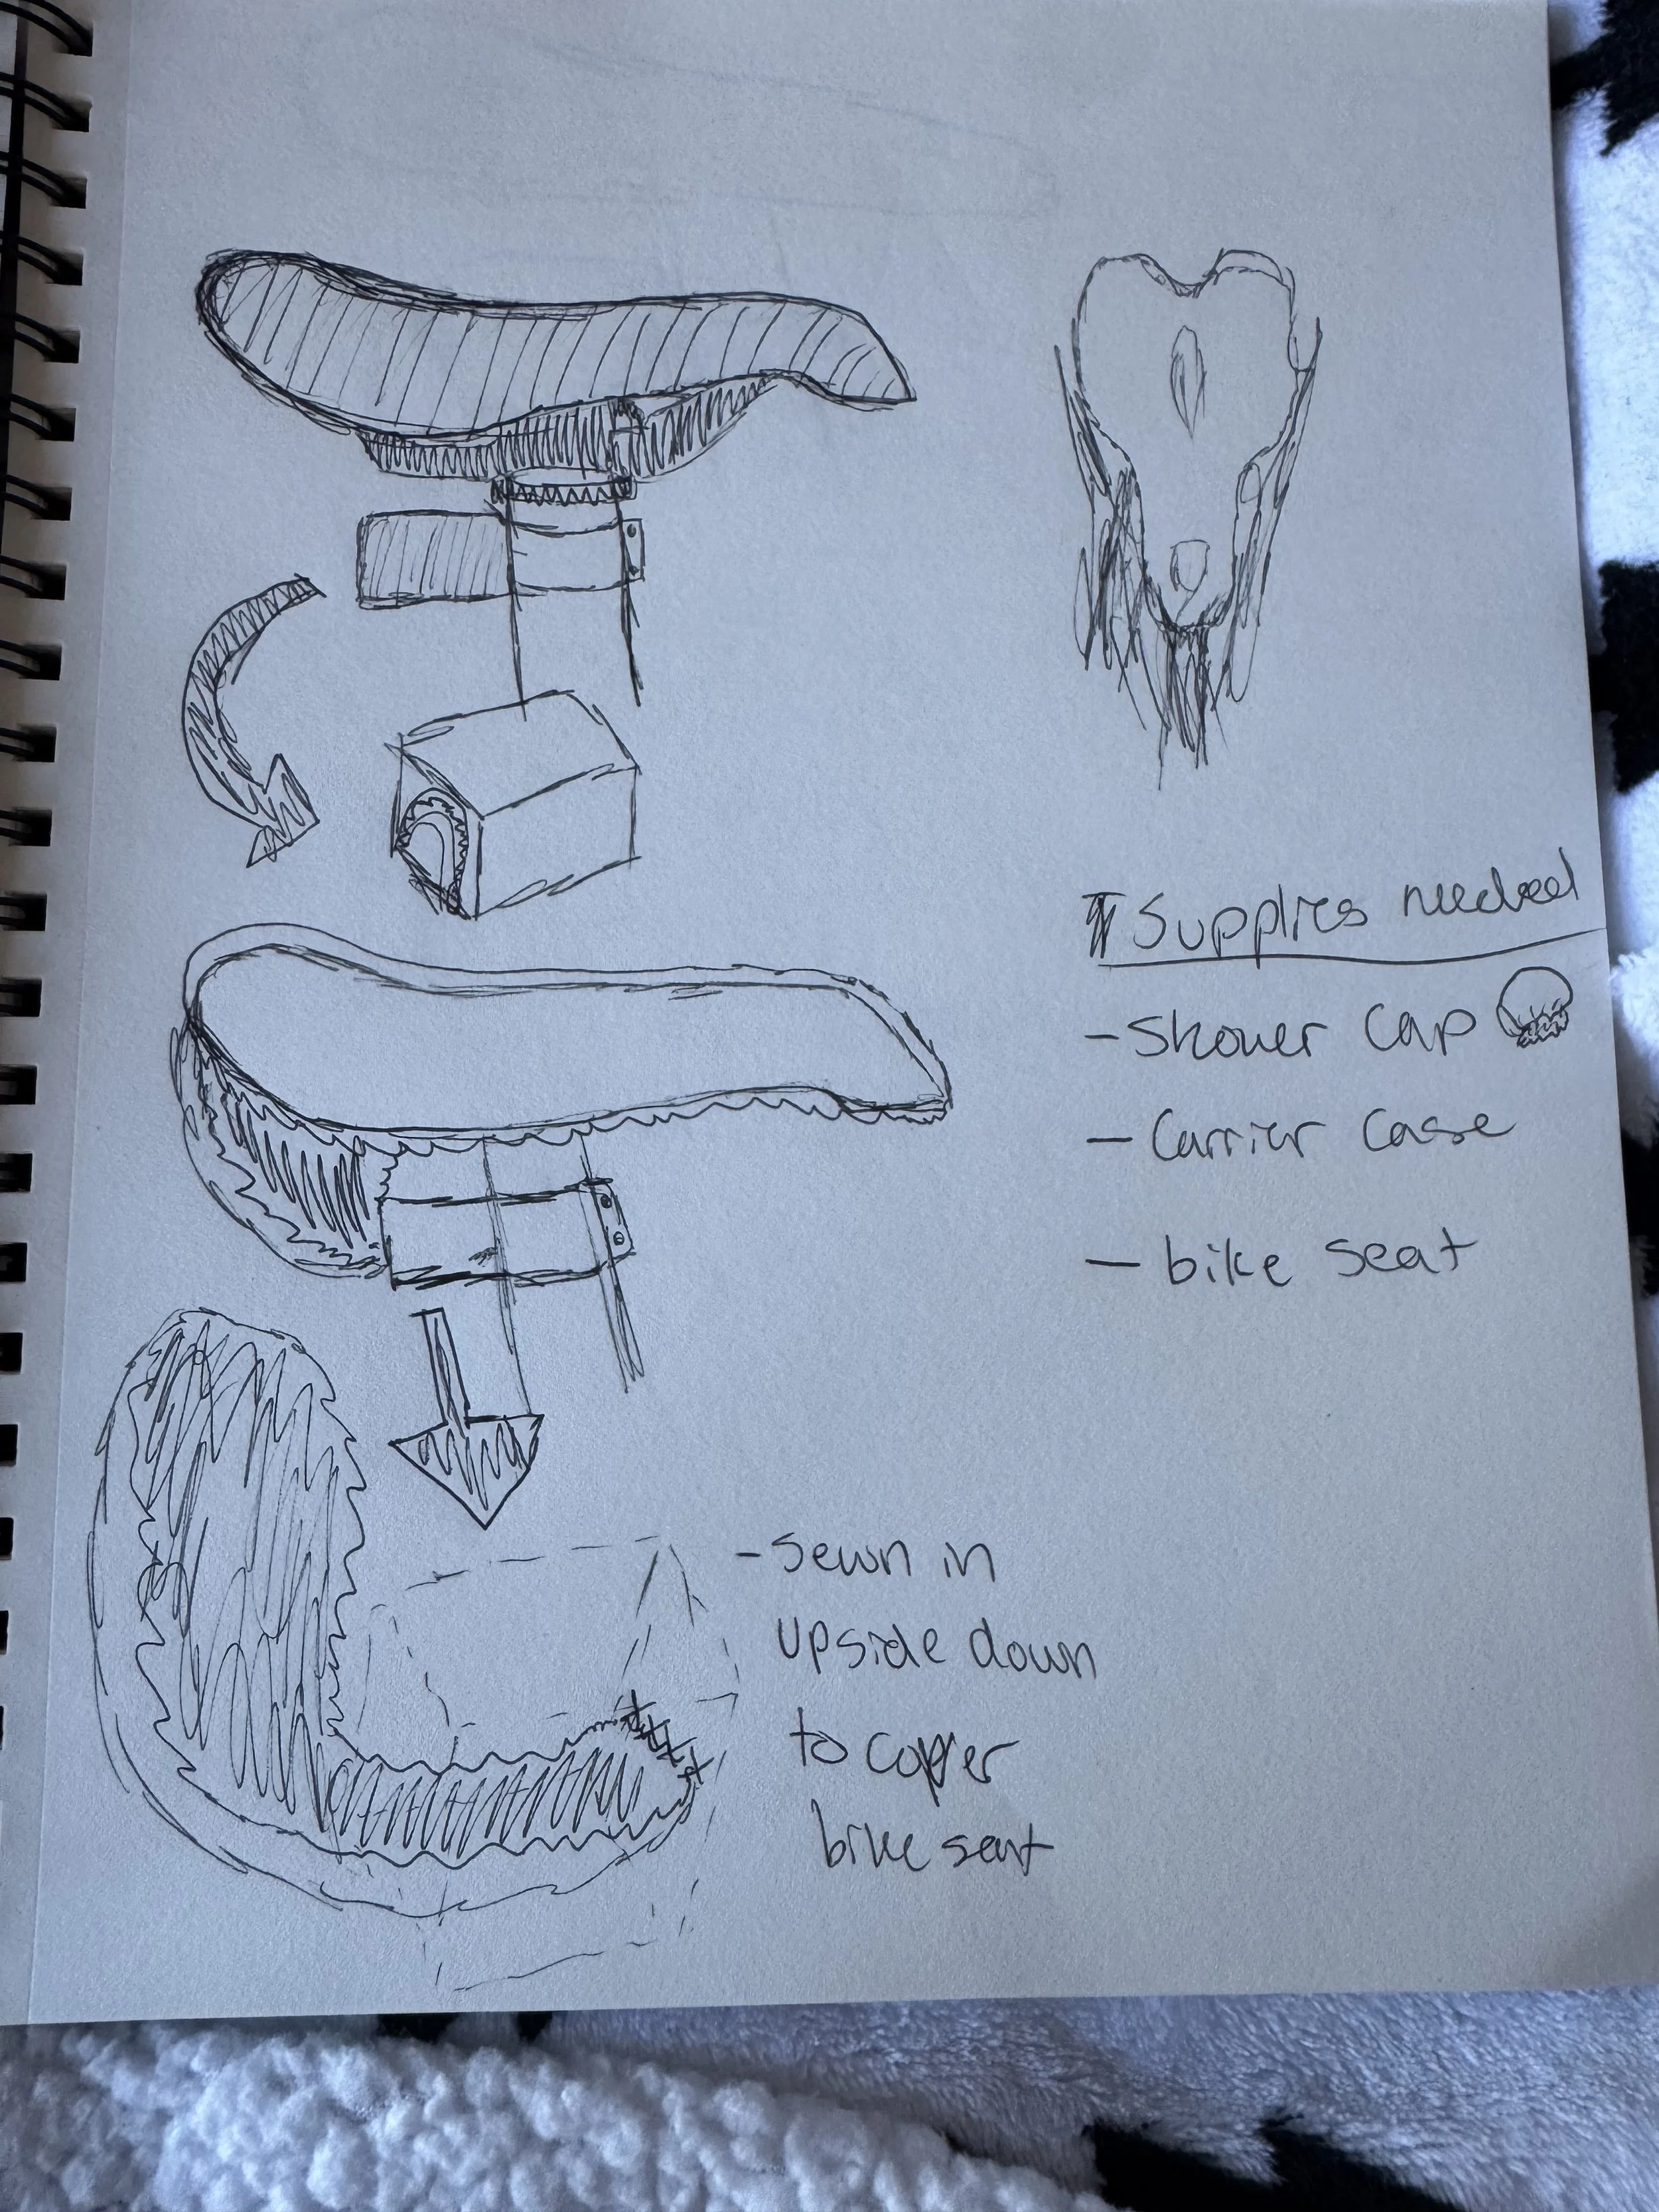 Supplies needed
- Shower Cap
- Carrier Case
- bike seat
- Sewn in
upside down
to cover
bike seat